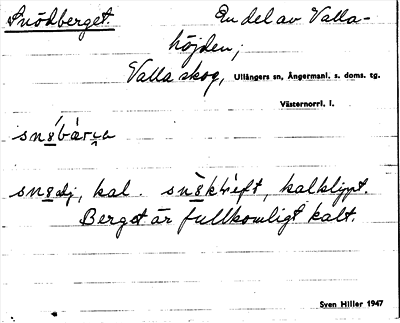 Snödberget. En del av Valla-
höjden;
Valla skog, Ullångers sn, Ångermanl. s. doms. tg.
Västernorrl. l.
kal. kalklippt.
Berget är fullkomligt kalt.
Sven Hiller 1947